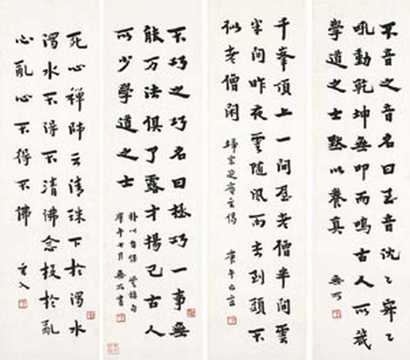 不音之音名曰音沈〻寂〻
吼動乾坤無叩而鳴古人所箴
學道之士默以養真
千峯頂上一間屋老僧半間雲
半間昨夜雲隨風雨去到頭不
似老僧閑
歸宗芝庵主偈
庚午
不巧之巧名曰極巧一事無
能万法俱了露才揚己古人
可少學道之士
死心禪師云清珠下於濁水
濁水不得不清佛念投於亂
心亂心不得不佛